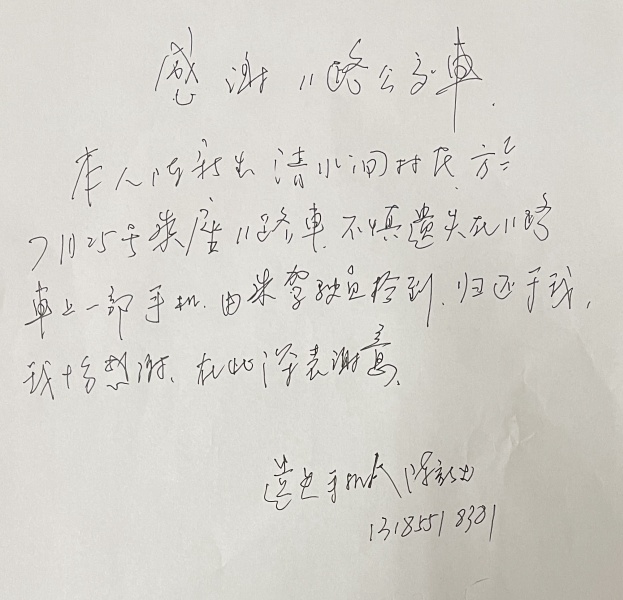 感谢11路公交車.
本人陈新出清水涧村民 方於
7月25号乘座11路車.不慎遗失在11路
車上一部手机.由朱驾驶员捡到.归还于我,
我十分感谢、在此深表謝意、
遗失手机人 陈新出
13185518381